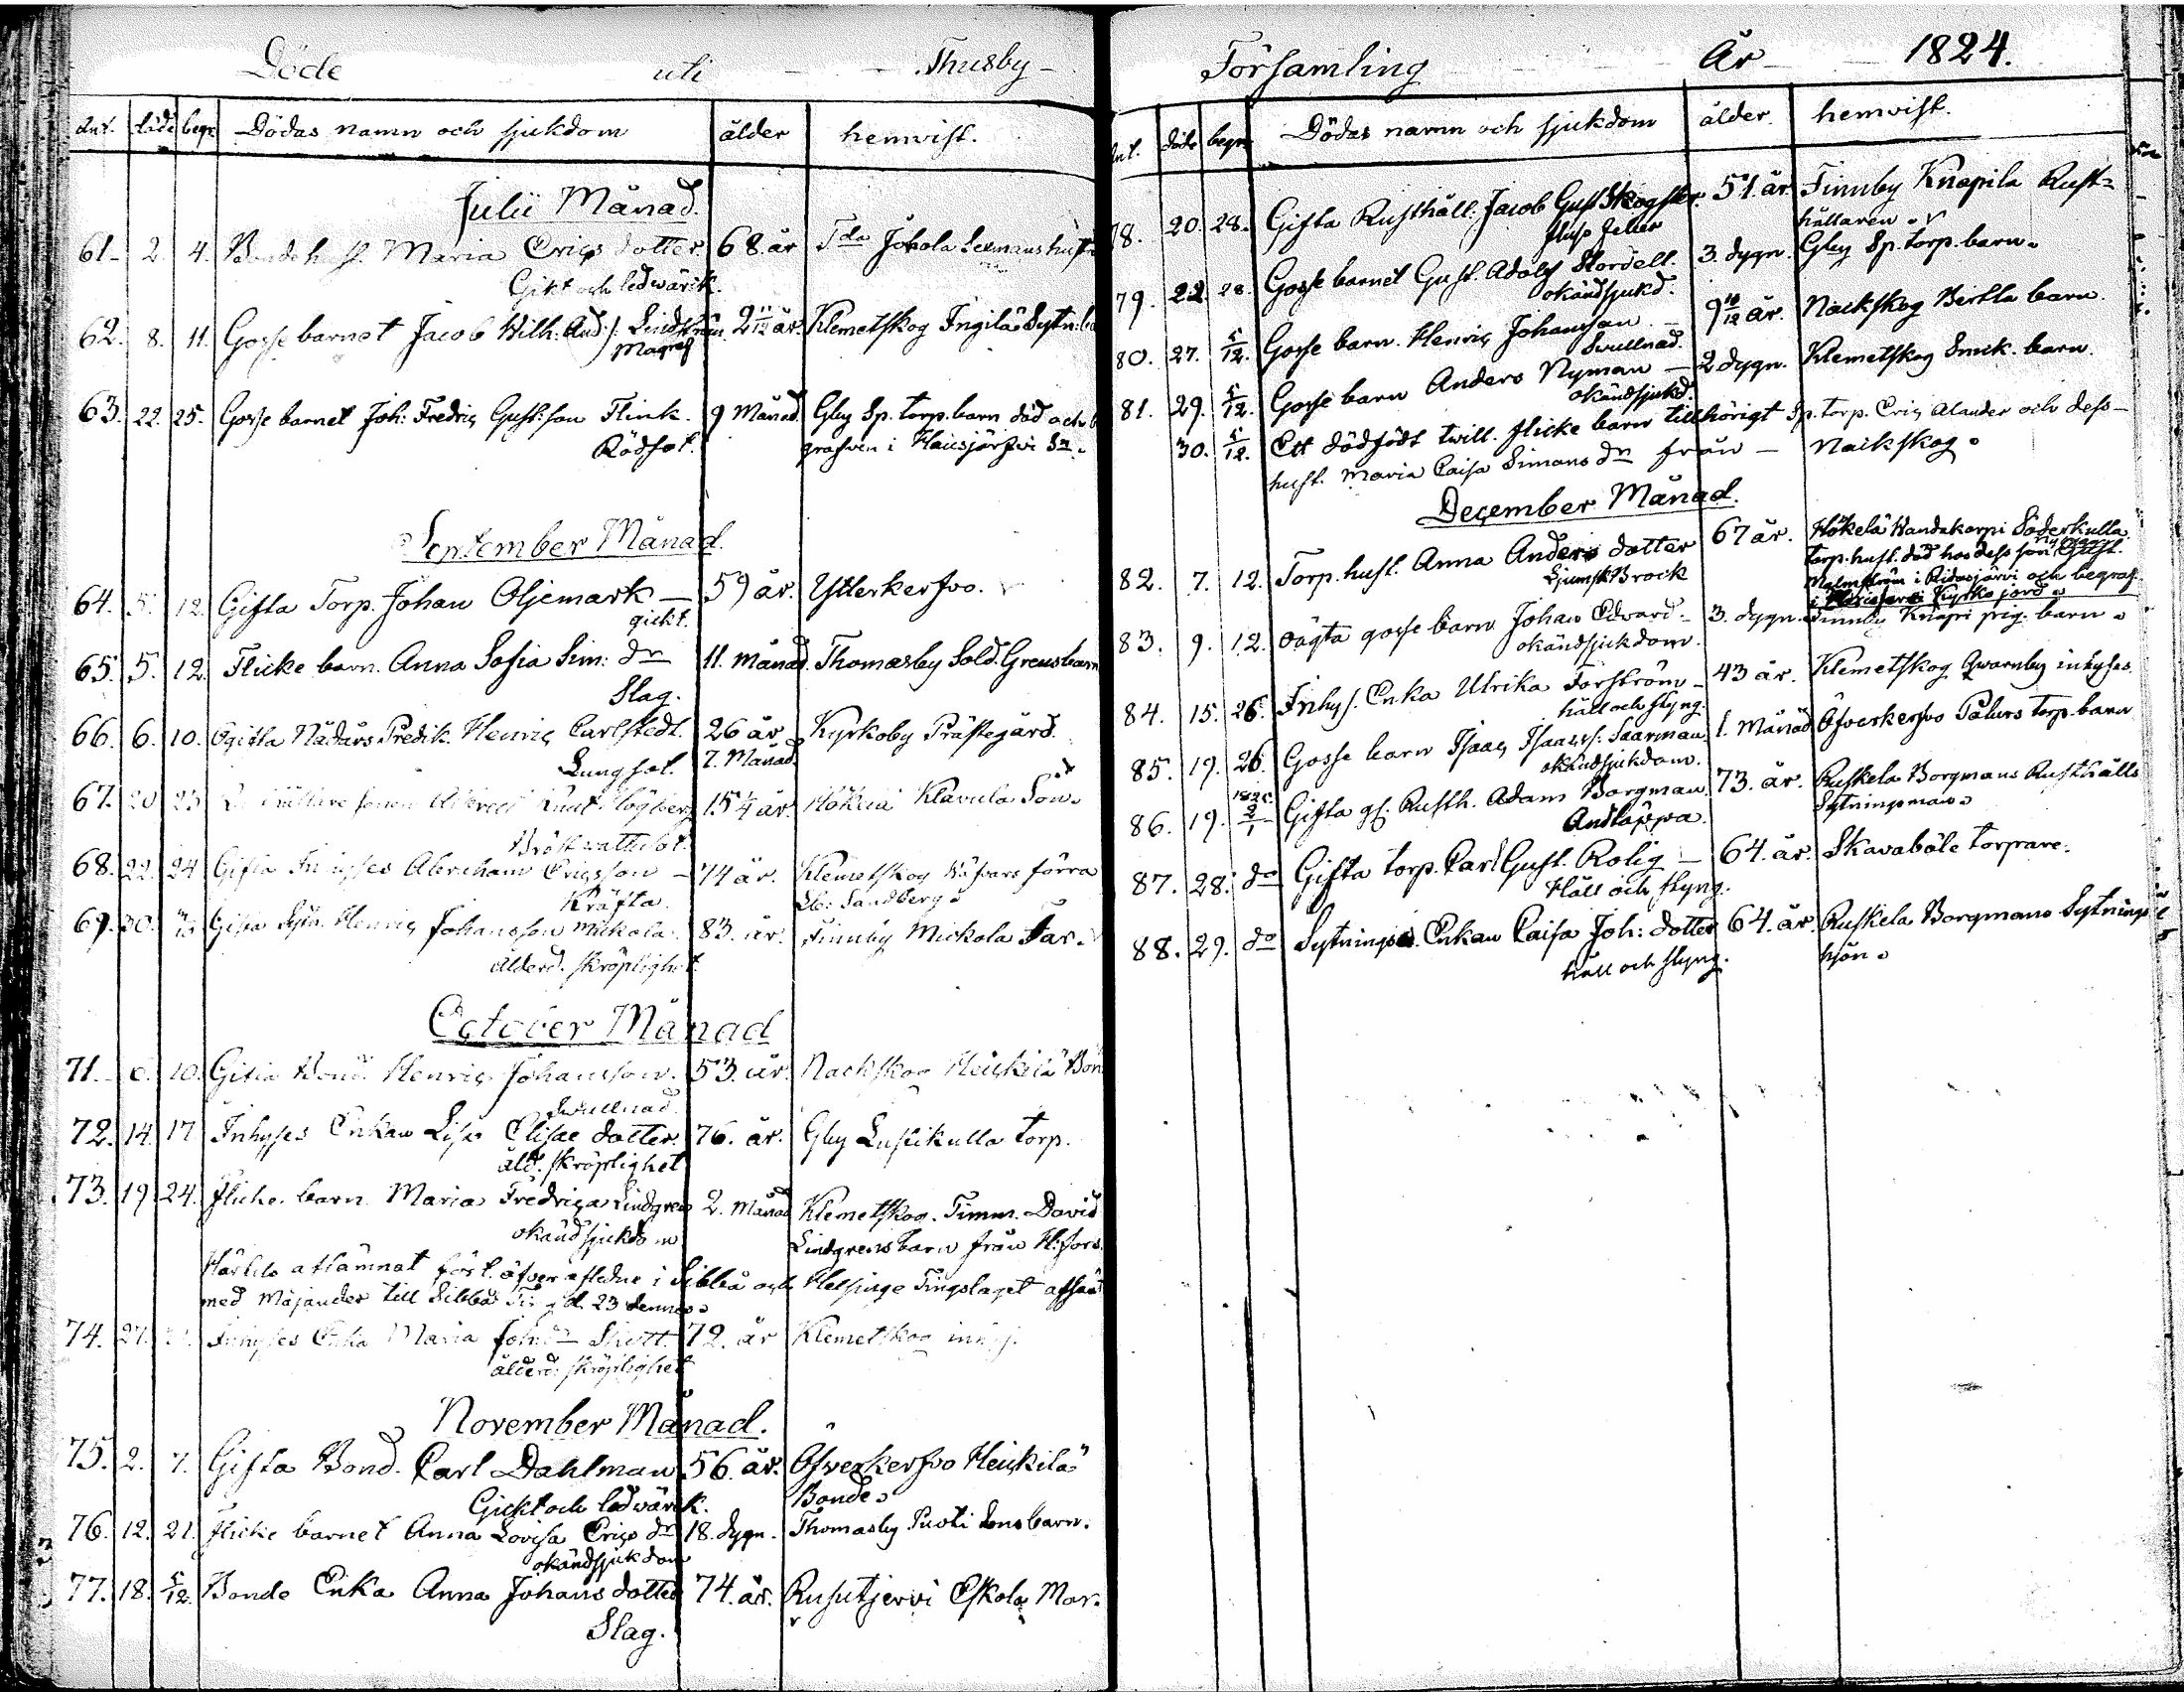 Döde uti Thusby
Ant. död begr. Dödas namn och sjukdom ålder hemvist.
Julii Månad.
61. 2. 4. Bondehust. Maria Erics dotter 68 år T:la Jokola Leemans hust
Gikt och ledwärk.
62. 8. 11. Gosse barnet Jacob Wilh: And:s: Lindström 2 11/12 år Klemetskog Ingilä Sytn:
Magref
63. 22. 25. Gosse barnet Joh: Fredric Gust:son Flink. 9 Månad Gby Sp. torp. barn död och be
Rödsot. grafwen i Hausjärfwi Sn.
September Månad.
64. 5. 12. Gifta Torp. Johan Oljemark 59 år. Ytterkerfvo.
gickt.
65. 5. 12. Flicke barn. Anna Sofia Sim: dr 11. månad. Thomasby Sold. Grensbarn
Slag.
66. 6. 10. Ogifta Nådårs Predik. Henric Carlstedt. 26 år Kyrkoby Prästegård.
Lungsot. 7. Månad.
67. 20 23 sonen Knut Högberg 15 1/4 år. Hökelä Klavula Son.
Bröst wattusot.
68. 22. 24 Gifta Inhyses Abraham Ericsson 74 år. Klemetskog förra
Kräfta. Sandberg.
69. 30. 3/10 Gifta Sytn. Henric Johansson Mickola. 83. år. Finnby Mickola Far.
Ålderd. skröplighet.
October Månad
71. 6. 10. Gifta Bond. Henric Johansson. 53. år. Nackskog Heickilä Bon
Swullnad.
72. 14. 17 Inhyses Enkan Lisa Elisae dotter. 76. år. Gby Lustikulla torp.
åld. skröplighet
73. 19. 24. flicke. barn Maria Fredrica Lindgren 2. Månad Klemetskog. Timm. David
okänd sjukdom Lindgrens barn från H:fors.
Härtils aflämnat förl. öfver afledne i Sibbå och Helsinge Tingslaget afsänt
med Majander till Sibbå d. 23 dennes.
74. 27. 31. Inhyses Enka Maria Joh:dr Skytt. 72. år Klemetskog inhys.
ålderd: skröplighet
November Månad.
75. 2. 7. Gifta Bond. Carl Dahlman 56. år. Öfverkerfvo Heickilä
Gickt och ledwärck. Bonde.
76. 12. 21. flicke barnet Anna Lovisa Erics dr 18. dygn. Thomasby Sons barn.
okänd sjukdom
77. 18. 5/12. Bonde Enka Anna Johans dotter 74. år. Rusutjervi Eskola Mor.
Slag.
Församling År 1824.
Ant. död begr. Dödas namn och sjukdom ålder. hemvist.
78. 20. 28. Gifta Rusthåll: Jacob Gust Skogster. 51. år. Finnby Knapila Rust=
hållaren.
79. 22. 28. Gosse barnet Gust. Adolf Stordell. 3. dygn. Gby Sp. torp. barn.
okänd sjukd.
80. 27. 5/12. Gosse barn. Henric Johansson 9 10/12 år. Nackskog Bertla barn.
Swullnad.
81. 29. 5/12. Gosse barn Anders Nyman 2 dygn. Klemetskog Smck. barn.
okänd sjukd.
30. 5/12. Ett dödfödt twill. flicke barn tillhörigt Sp. torp. Eric Alander och dess
hust. Maria Caisa Simons dr från Nackskog.
December Månad.
82. 7. 12. Torp. hust. Anna Anders dotter 67 år. Hökelä Wandakorpi Söderkulla
Ljumsk Brock torp. hust. död hos dess son Gust.
Malmström i Ridasjärvi och begraf.
i Kyrko jord.
83. 9. 12. oägta gosse barn Johan Edvard 3. dygn. Finnby Knapi pig. barn.
okänd sjukdom.
84. 15. 26. Inhys. Enka Ulrika Forström 43 år. Klemetskog Qwarnby inhyses.
håll och styng.
85. 19. 26. Gosse barn Isaac Isaacs: Saarman 1. Månad Öfverkerfvo Pålurs torp. barn
okänd sjukdom.
86. 19. 1825 2/1 Gifta gl. Rusth. Adam Borgman. 73. år. Ruskela Borgmans Rusthålls
Andtäppa. Sytningsman.
87. 28. do Gifta torp. Carl Gust. Rolig 64. år. Skavaböle torpare.
Håll och styng.
88. 29. do Sytnings. Enkan Caisa Joh: dotter 64. år. Ruskela Borgmans Sytnings
håll och styng. hjon.